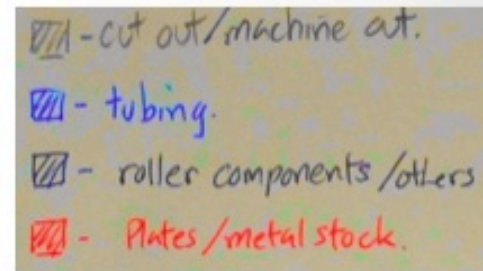 - cut out/machine out.
- tubing.
- roller components/others
- Plates/metal stock.